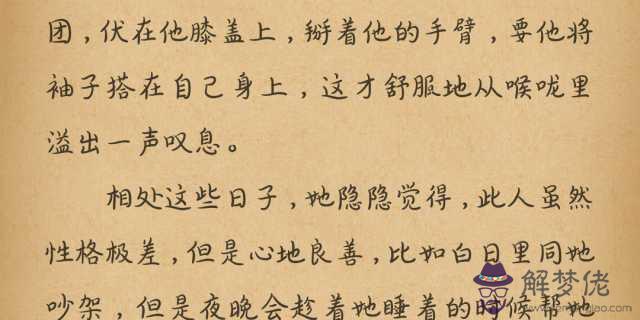 团，伏在他膝盖上，掰着他的手臂，要他将
袖子搭在自己身上，这才舒服地从喉咙里
溢出一声叹息。
相处这些日子，她隐隐觉得，此人虽然
性格极差，但是心地良善，比如白日里同她
吵架，但是夜晚会趁着她睡着的时候帮她
解梦佬